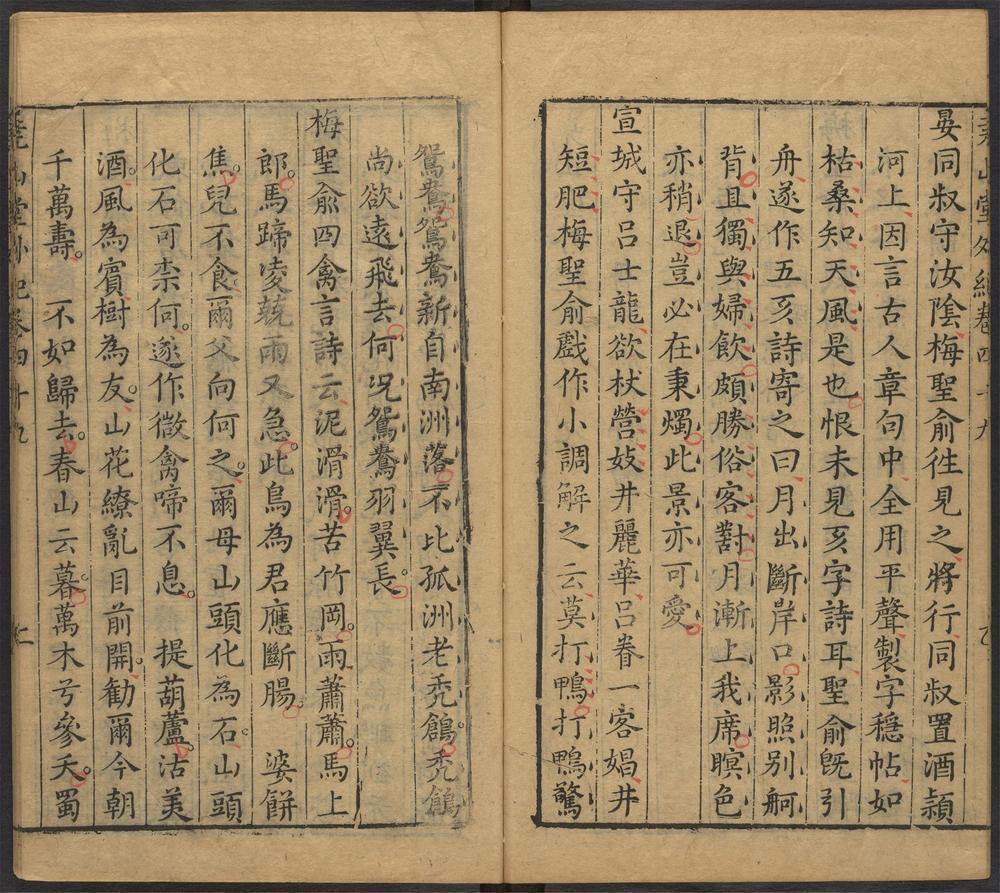 晏同叔守汝陰梅聖俞徃見之將行同叔置酒潁
河上因言古人章句中全用平聲製字穩帖如
枯桑知天風是也恨未見亥字詩耳聖俞旣引
舟遂作五亥詩寄之曰月出斷岸口影照別舸
背且獨與婦飲頗勝俗客對月漸上我席瞑色
亦稍退豈必在秉燭此景亦可愛
宣城守呂士龍欲杖營妓井麗華呂眷一客娼井
短肥梅聖俞戲作小調解之云莫打鴨打鴨驚
鴛鴦鴛鴦新自南洲落不比孤洲老禿鶬禿鶬
尚欲遠飛去何况鴛鴦羽翼長
梅聖俞四禽言詩云泥滑滑苦竹岡雨蕭蕭馬上
郎馬蹄凌兢雨又急此鳥為君應斷腸 婆餅
焦兒不食爾父向何之爾母山頭化為石山頭
化石可柰何遂作微禽啼不息 提葫蘆沽美
酒風為賓樹為友山花繚亂目前開勸爾今朝
千萬壽 不如歸去春山云暮萬木兮參天蜀